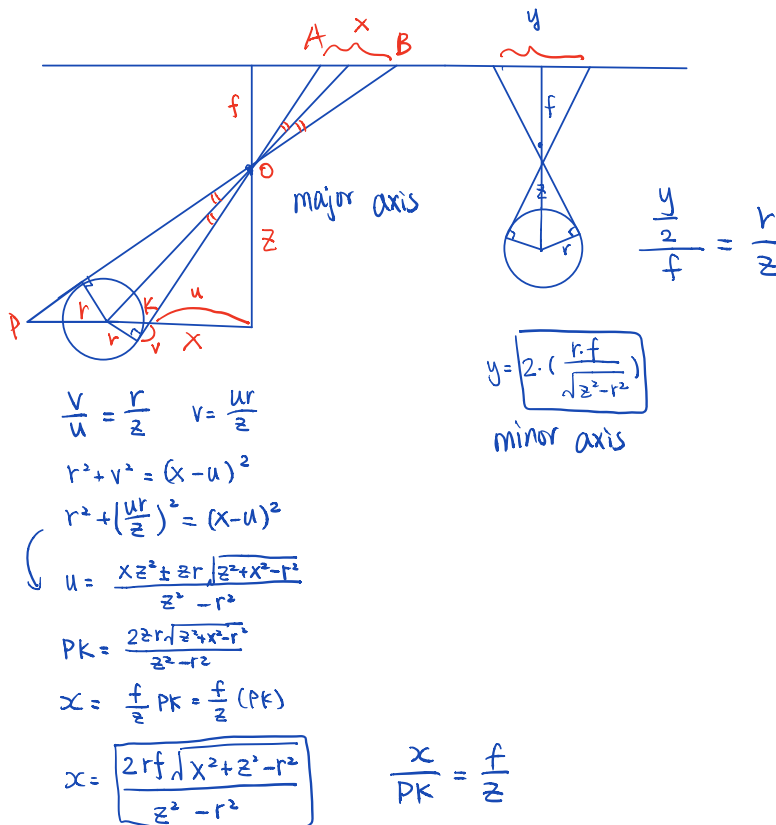 A x B
y
f
f
O
major axis
z
z
r
u
P r r K v X
(y/2)/f = r/z
y = 2·(r·f/√(z²-r²))
minor axis
v/u = r/z v = ur/z
r² + v² = (x-u)²
r² + (ur/z)² = (x-u)²
u = (xz² ± zr√(z²+x²-r²))/(z² - r²)
PK = (2zr√(z²+x²-r²))/(z²-r²)
x = f/z PK = f/z (PK)
x = (2rf√(x²+z²-r²))/(z² - r²)
x/PK = f/z